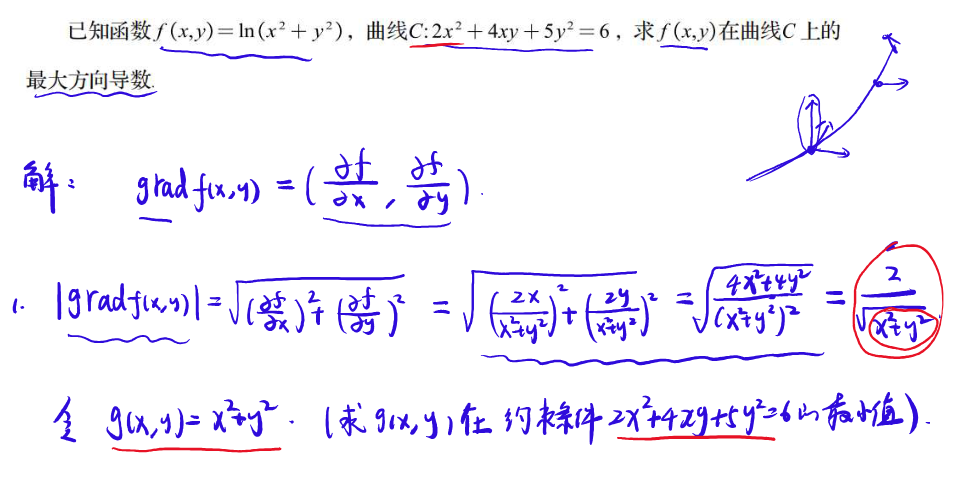 已知函数 f(x,y)=ln(x²+y²)，曲线C:2x²+4xy+5y²=6，求 f(x,y)在曲线C上的
最大方向导数.
解： grad f(x,y) = (∂f/∂x , ∂f/∂y).
1. |grad f(x,y)| = √((∂f/∂x)²+(∂f/∂y)²) = √((2x/(x²+y²))²+(2y/(x²+y²))²) = √((4x²+4y²)/(x²+y²)²) = 2/√(x²+y²).
令 g(x,y)= x²+y². (求 g(x,y)在约束条件 2x²+4xy+5y²=6的最小值).